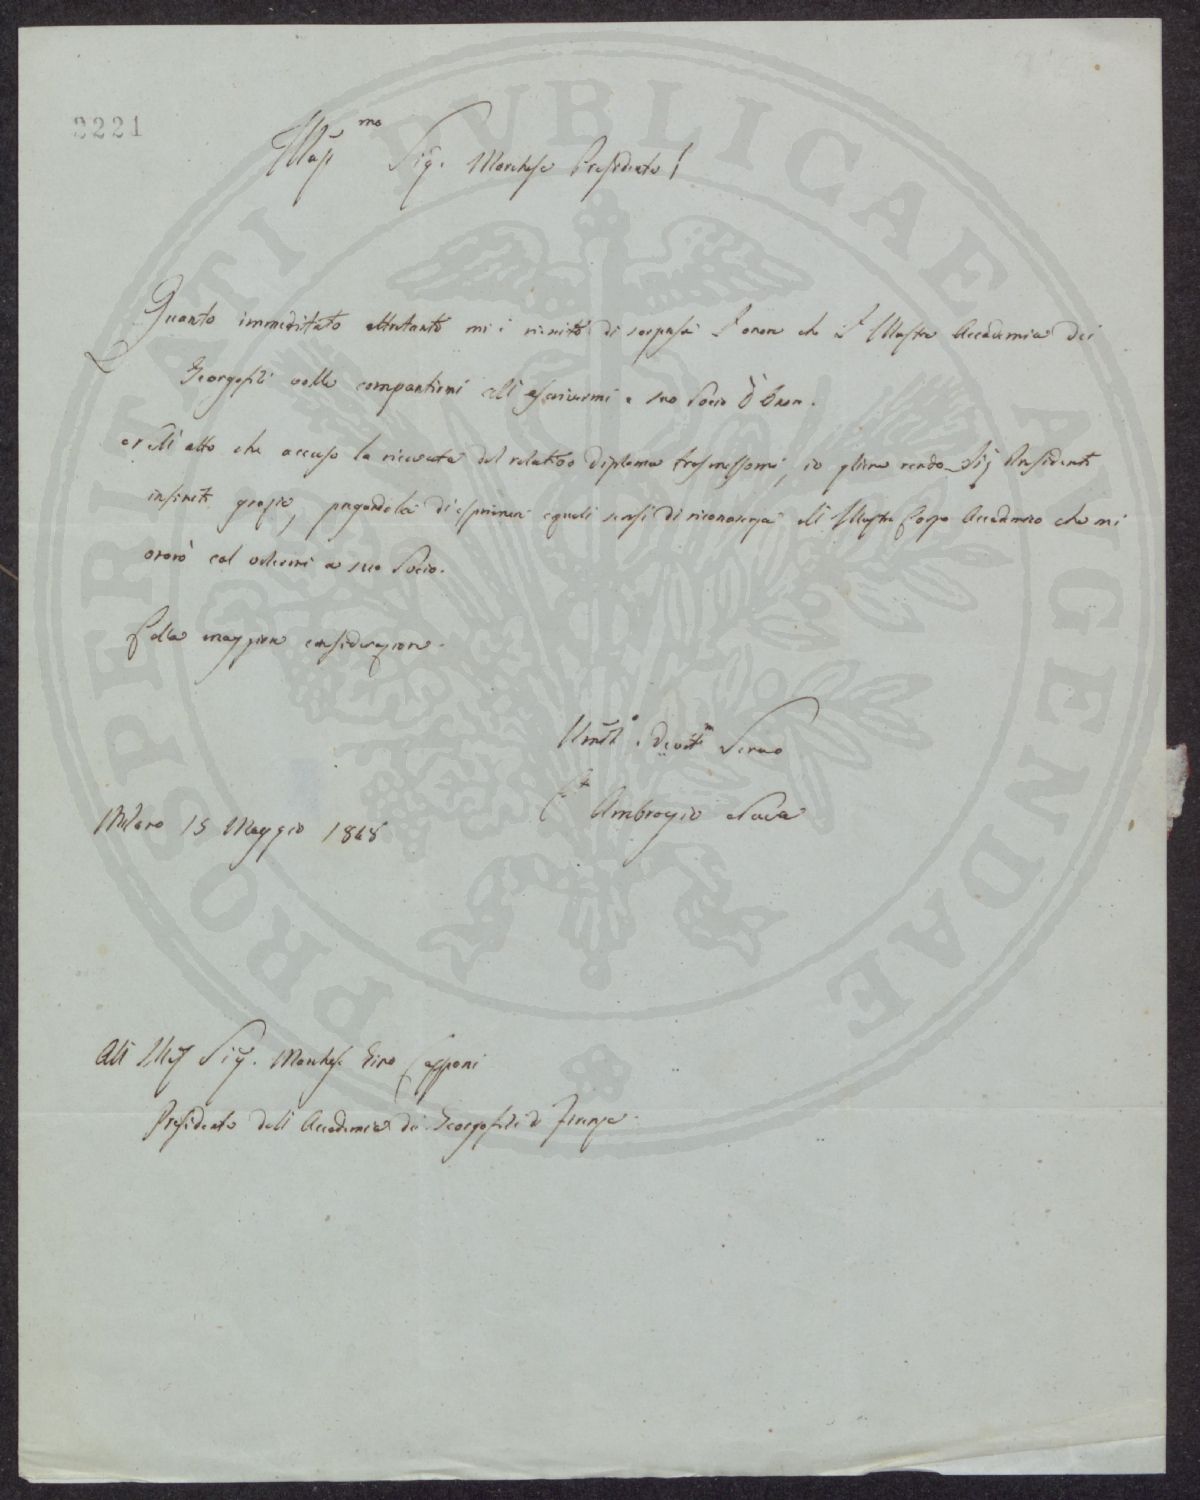 2221
Illus mo Sig. Marchese Presidente!
Quanto immeditato altretanto mi è riuscito di sorpresa l'onore che l'Illustre Accademia dei
Georgofili volle compartirmi all' ascrivermi a suo Socio d'Onore.
Nell' atto che accuso la ricevuta del relativo diploma trasmessomi, io rendo Sig Presidente
infinite grazie, pregandola di esprimere eguali sensi di riconoscenza all' Illustre Corpo Accademico che mi
onorò col volermi a suo Socio.
Colla maggiore considerazione.
Umil.o Devot.m Servo
C.te Ambrogio Nava
Milano 15 Maggio 1845
All' Ill Sig. Marchese Gino Capponi
Presidente dell' Accademia dei Georgofili di Firenze.
PROSPERITATI PUBLICAE AVGENDAE